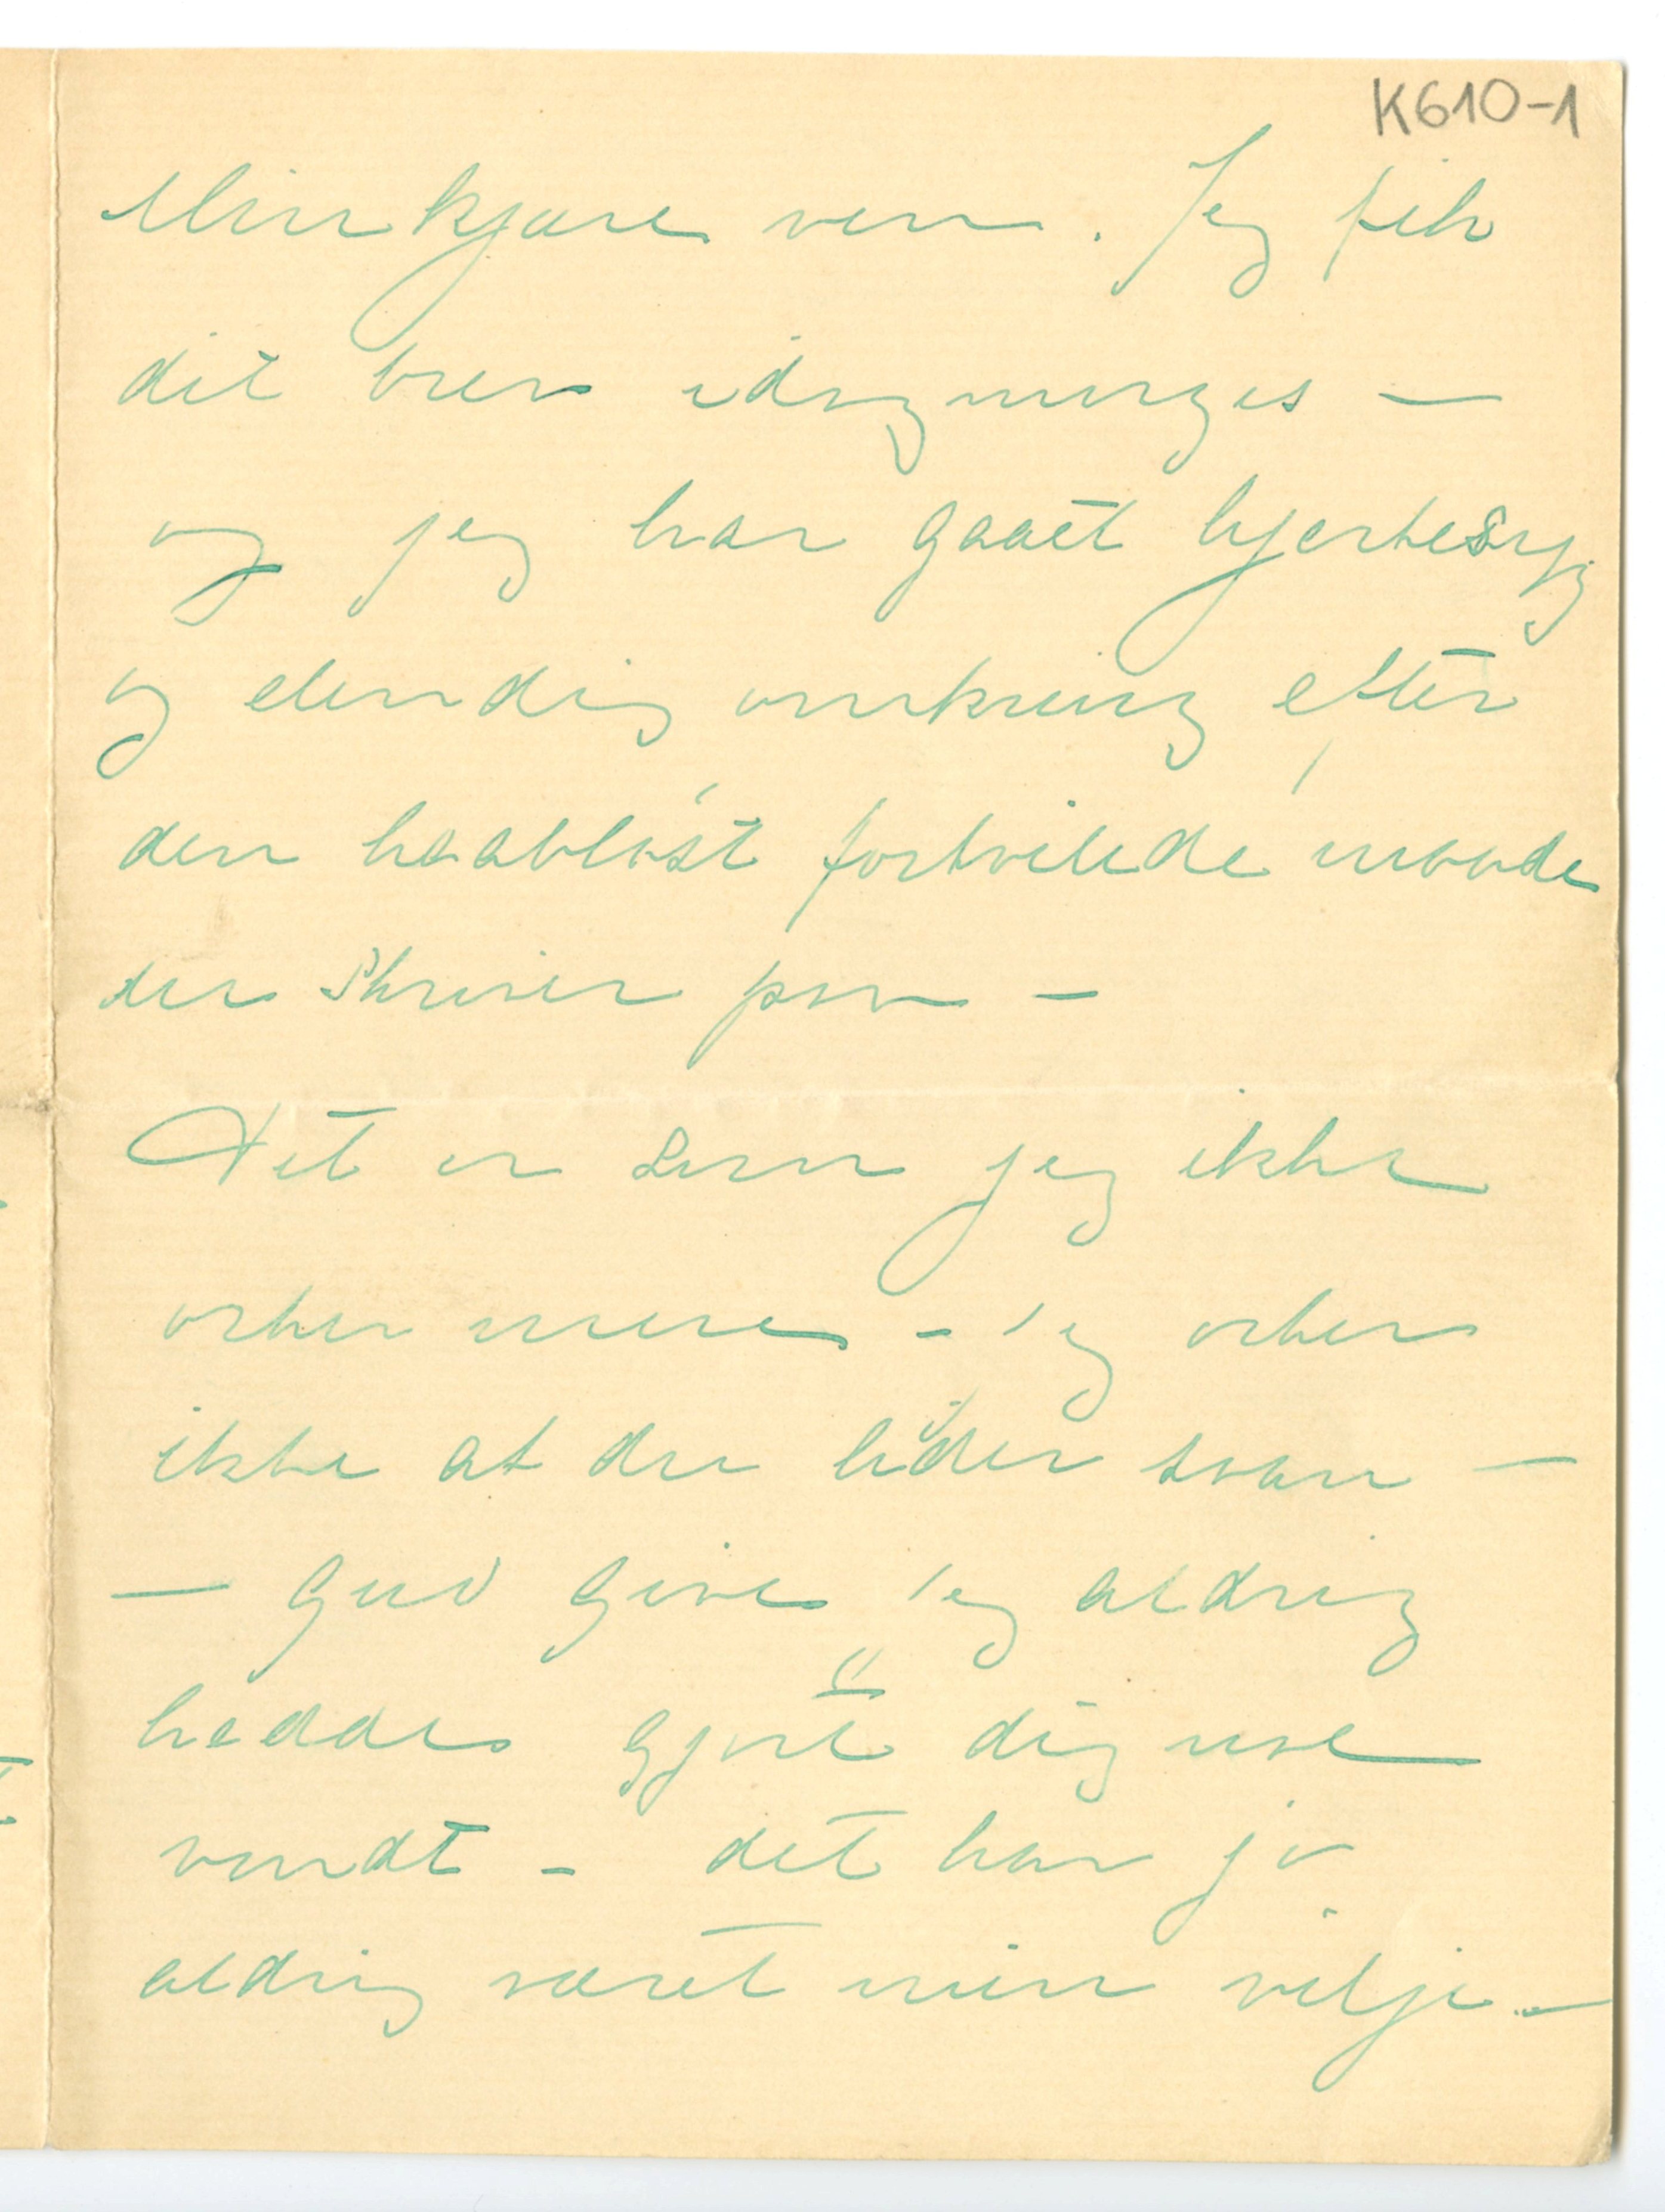 K610-1
Min kjære ven. Jeg fik
dit brev idagmorges —
og jeg har gaaet hjertesyg
og elendig omkring efter
den haabløst fortvilede maade
du skriver paa —
Det er som jeg ikke
orker mere – jeg orker
ikke at du lider saan —
— Gud give jeg aldrig
hadde gjort dig noe
vondt – det har jo
aldrig været min vilje. –